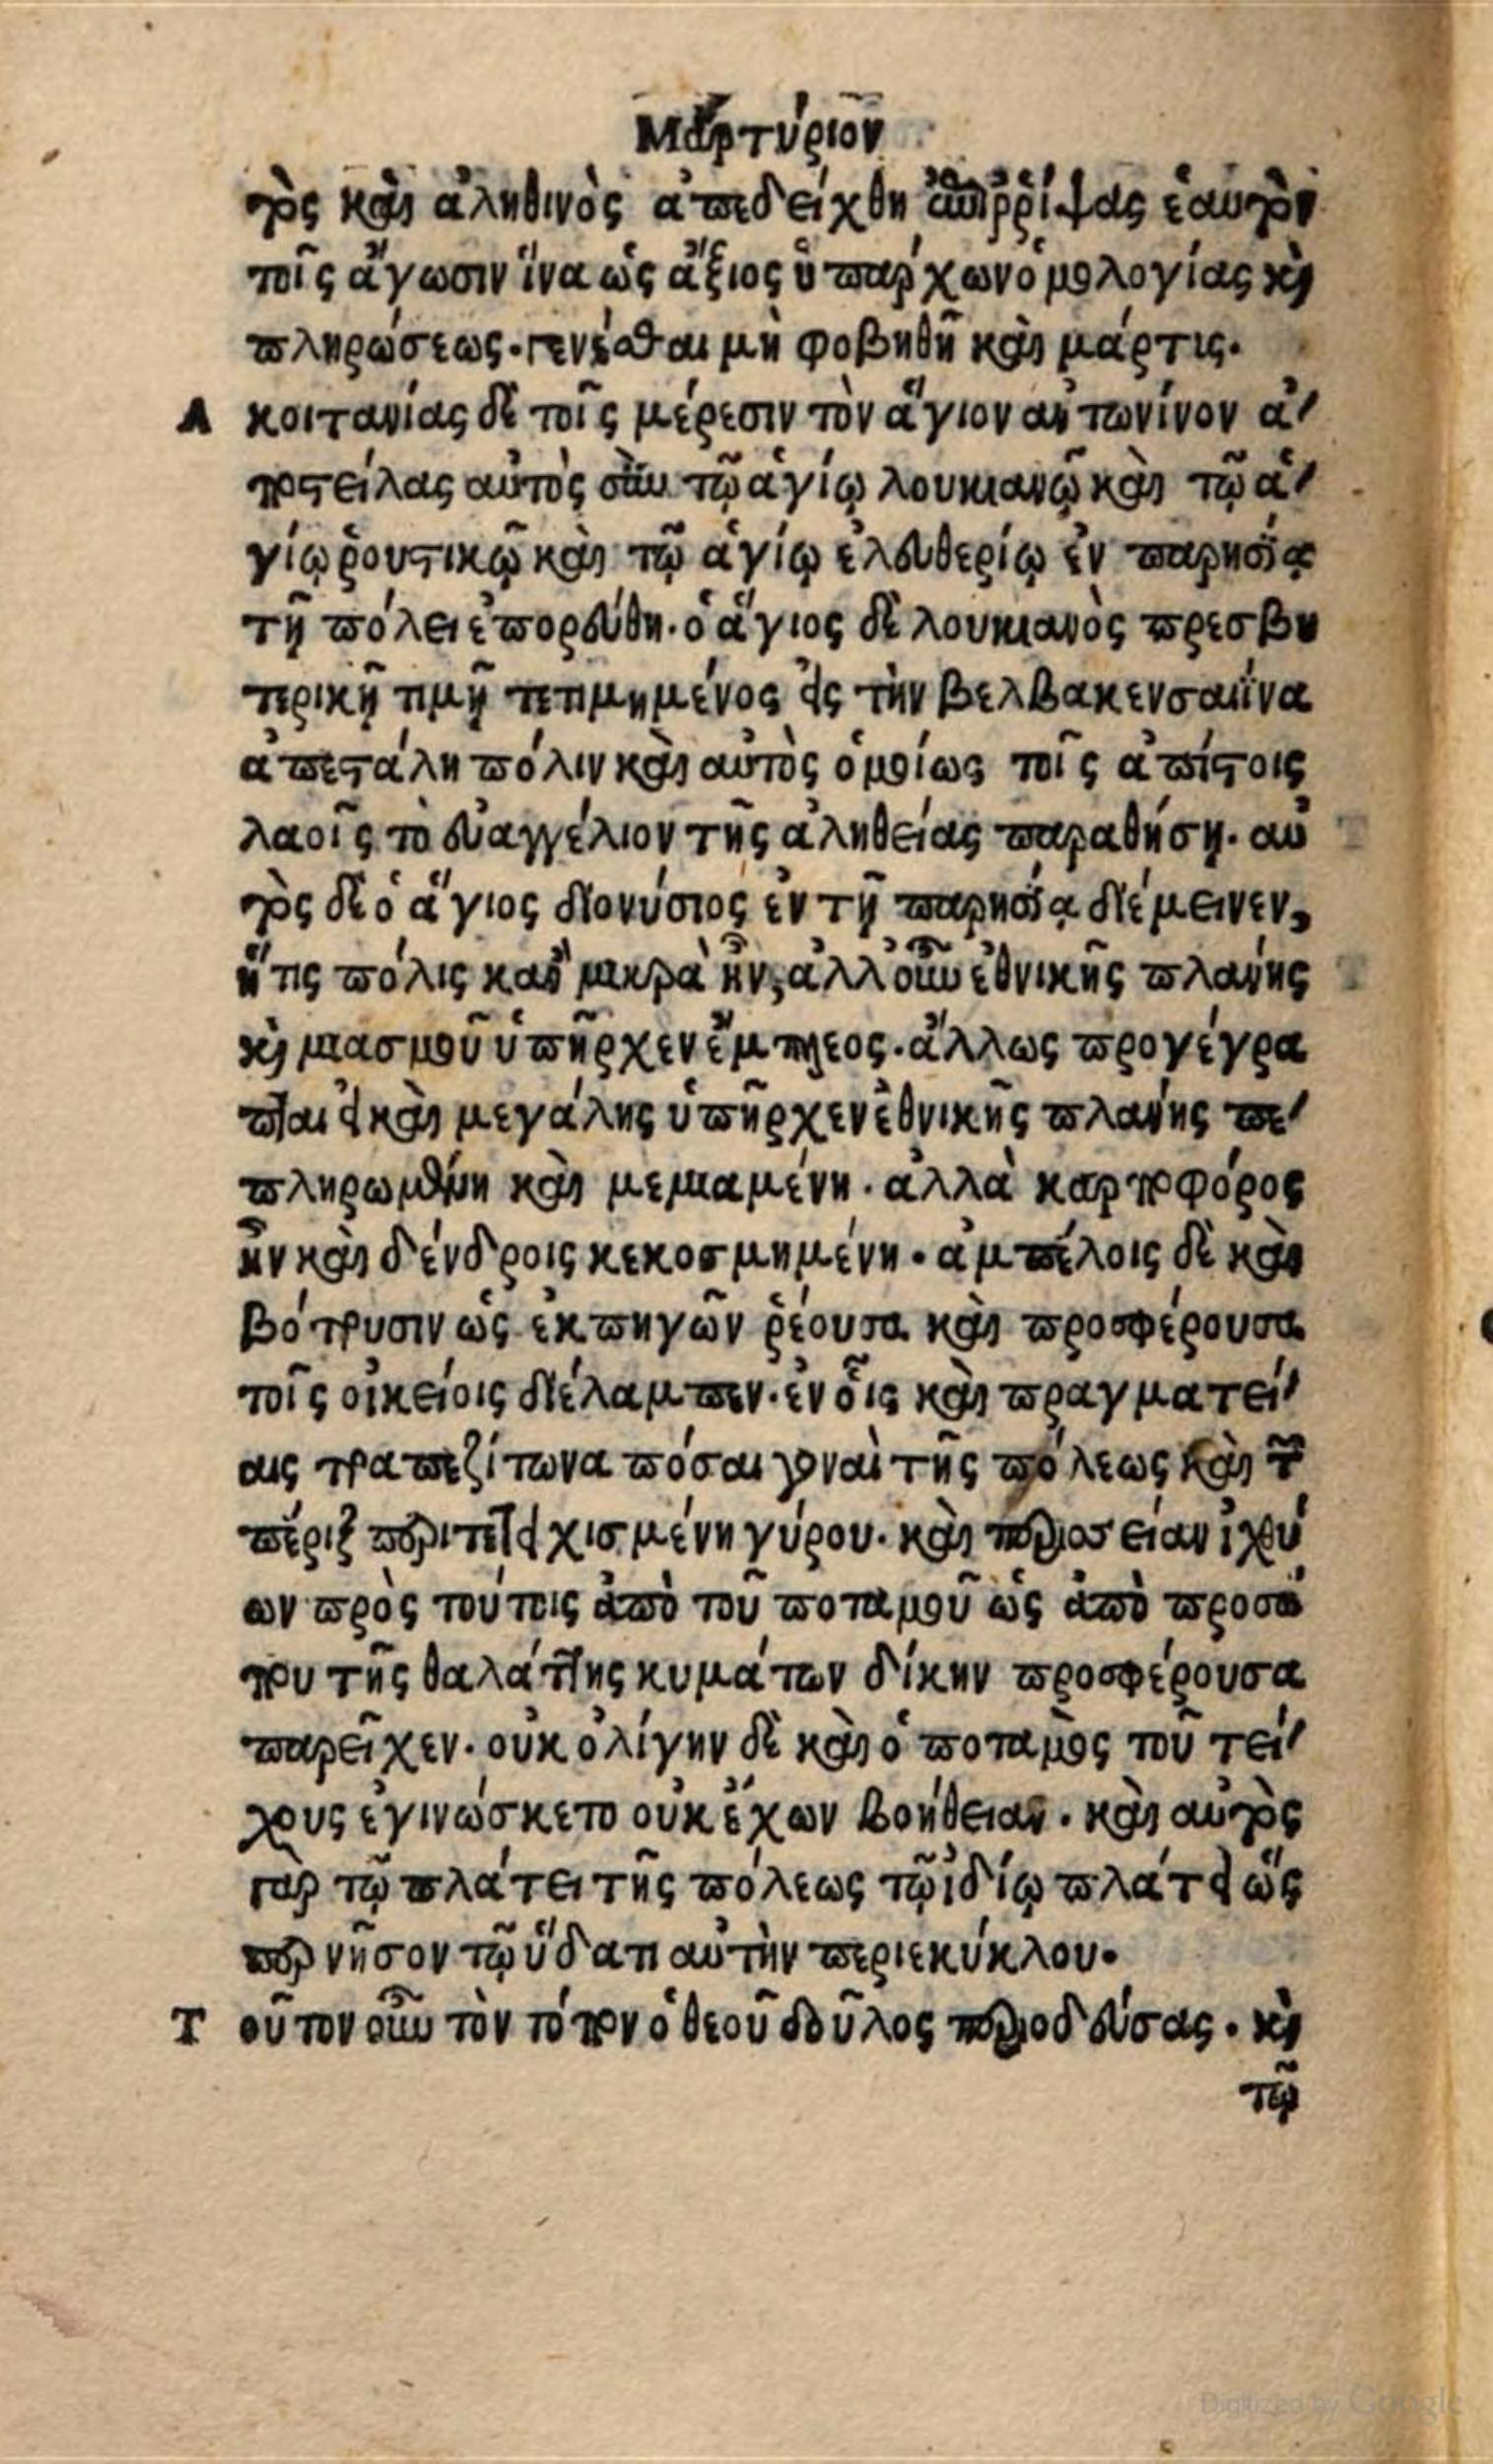 Μαρτύριον
τὸς καὶ ἀληθινὸς ἀπεδείχθη ἐπιῤῥίψας ἑαυτὸν
τοῖς ἀγωσιν ἵνα ὡς ἄξιος ὑπαρχων ὁμολογίας καὶ
πληρώσεως. γενέσθαι μὴ φοβηθῆ καὶ μάρτις.
Α κοιτανίας δὲ τοῖς μέρεσιν τὸν ἅγιον αντωνίνον ἀ
ποστείλας αὐτὸς σὺν τῷ ἁγίῳ λουκιανῷ καὶ τῷ ἁ
γίῳ ῥουστικῷ καὶ τῷ ἁγίῳ ἐλευθερίῳ ἐν παρησίᾳ
τῇ πόλει ἐπορεύθη. ὁ ἅγιος δὲ λουκιανὸς πρεσβυ
τερικῇ τιμῇ τετιμημένος εἰς τὴν βελβακενσαΐνα
ἀπεστάλη πόλιν καὶ αὐτὸς ὁμοίως τοῖς ἀπίστοις
λαοῖς τὸ εὐαγγέλιον τῆς ἀληθείας παραθήσῃ. αὐ
τὸς δὲ ὁ ἅγιος διονύσιος ἐν τῇ παρησίᾳ διέμεινεν,
ἥτις πόλις καὶ μικρὰ ἦν, ἀλλ οὖν ἐθνικῆς πλάνης
καὶ μιασμοῦ ὑπῆρχεν ἔμπλεος. ἄλλως προγέγρα
πται εἰ καὶ μεγάλης ὑπῆρχεν ἐθνικῆς πλάνης πε
πληρωμένη καὶ μεμιαμένη. ἀλλὰ καρποφόρος
ἦν καὶ δένδροις κεκοσμημένη. ἀμπέλοις δὲ καὶ
βότρυσιν ὡς ἐκ πηγῶν ῥέουσα καὶ προσφέρουσα
τοῖς οἰκείοις διέλαμπεν. ἐν οἷς καὶ πραγματεί
αις τραπεζίτων απόσαι γοναὶ τῆς πόλεως καὶ τῆς
πέριξ περιτετειχισμένη γύρου. καὶ περιοσείαν ἰχθύ
ων πρὸς τούτοις ἀπὸ τοῦ ποταμοῦ ὡς ἀπὸ προσώ
που τῆς θαλάττης κυμάτων δίκην προσφέρουσα
παρεῖχεν. οὐκ ὀλίγην δὲ καὶ ὁ ποταμὸς τοῦ τεί
χους ἐγινώσκετο οὐκ ἔχων βοήθειαν. καὶ αὐτὸς
γαρ τῷ πλάτει τῆς πόλεως τῷ ἰδίῳ πλάτει ὥς
περ νῆσον τῷ ὕδατι αὐτὴν περιεκύκλου.
Τ οῦτον οὖν τὸν τόπον ὁ θεοῦ δοῦλος περιοδεύσας. καὶ
τῷ